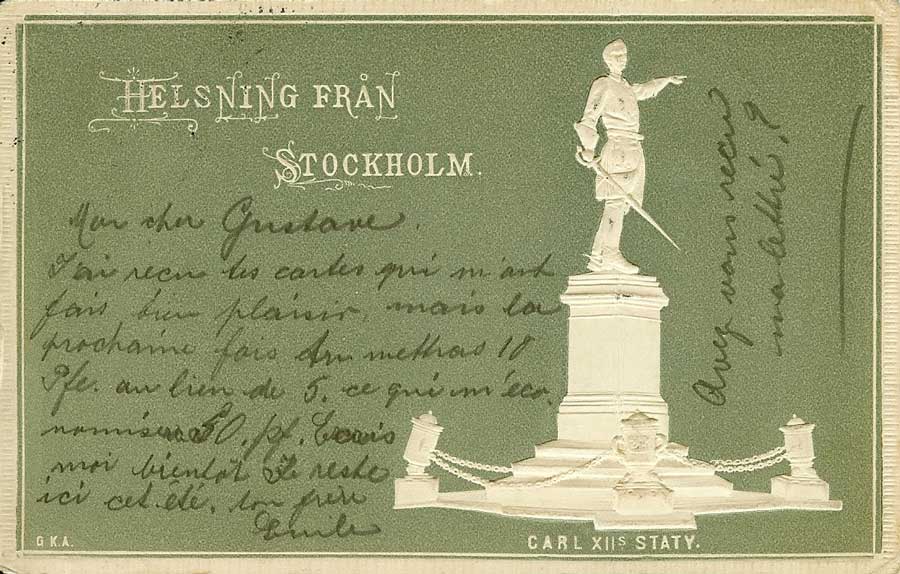 HELSNING FRÅN
STOCKHOLM.
Mon cher Gustave.
J'ai recu tes cartes qui m'ont
fais bien plaisir mais la
prochaine fois tu mettras 10
Pfe. au lieu de 5. ce qui m'éco,
nomisera 50. pf. Ecris
moi bientôt Je reste
ici cet été. ton frère
Emile
Avez vous recu
ma lettre,?
G K.A.
CARL XIIS STATY.